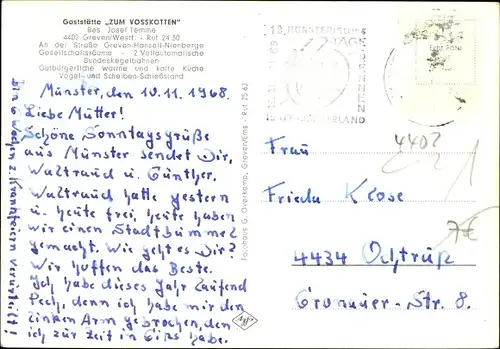 Gaststätte „ZUM VOSSKOTTEN"
Bes. Josef Temme
4402 Greven/Westf. - Ruf 24 50
An der Straße Greven-Hansell-Nienberge
Gesellschaftsräume - 2 Vollautomatische
Bundeskegelbahnen
Gutbürgerliche warme und kalte Küche
Vogel- und Scheiben-Schießstand
Münster, den 10.11.1968.
Liebe Mütter!
Schöne Sonntagsgrüße
aus Münster sendet Dir,
Waltraud u. Günther.
Waltraud hatte gestern
u. heute frei, heute haben
wir einen Stadtbummel
gemacht. Wie geht es Dir?
Wir hoffen das Beste.
Ich habe dieses Jahr laufend
Pech, denn ich habe mir den
linken Arm gebrochen, den
ich zur Zeit in Gips habe.
Bin 6 Wochen z. Krankfeiern verurteilt!
Fotohaus G. Overkamp, Greven/Ems - Ruf 25 62
TAGE
4402
Frau
Frieda Klose
7€
4434 Ochtrup
Gronauer-Str. 8.